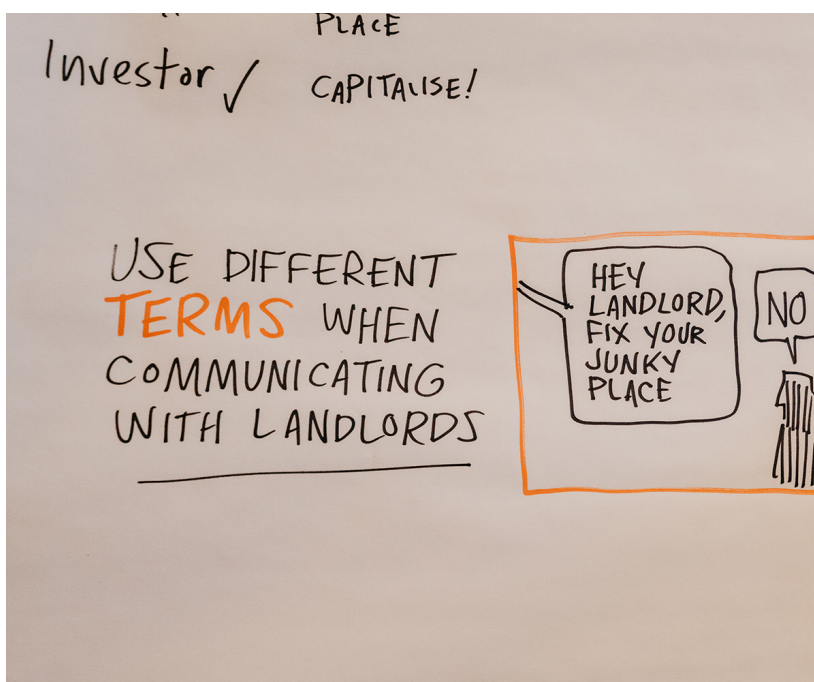 PLACE
Investor ✓
CAPITALISE!
USE DIFFERENT
TERMS WHEN
COMMUNICATING
WITH LANDLORDS
HEY
LANDLORD,
FIX YOUR
JUNKY
PLACE
NO